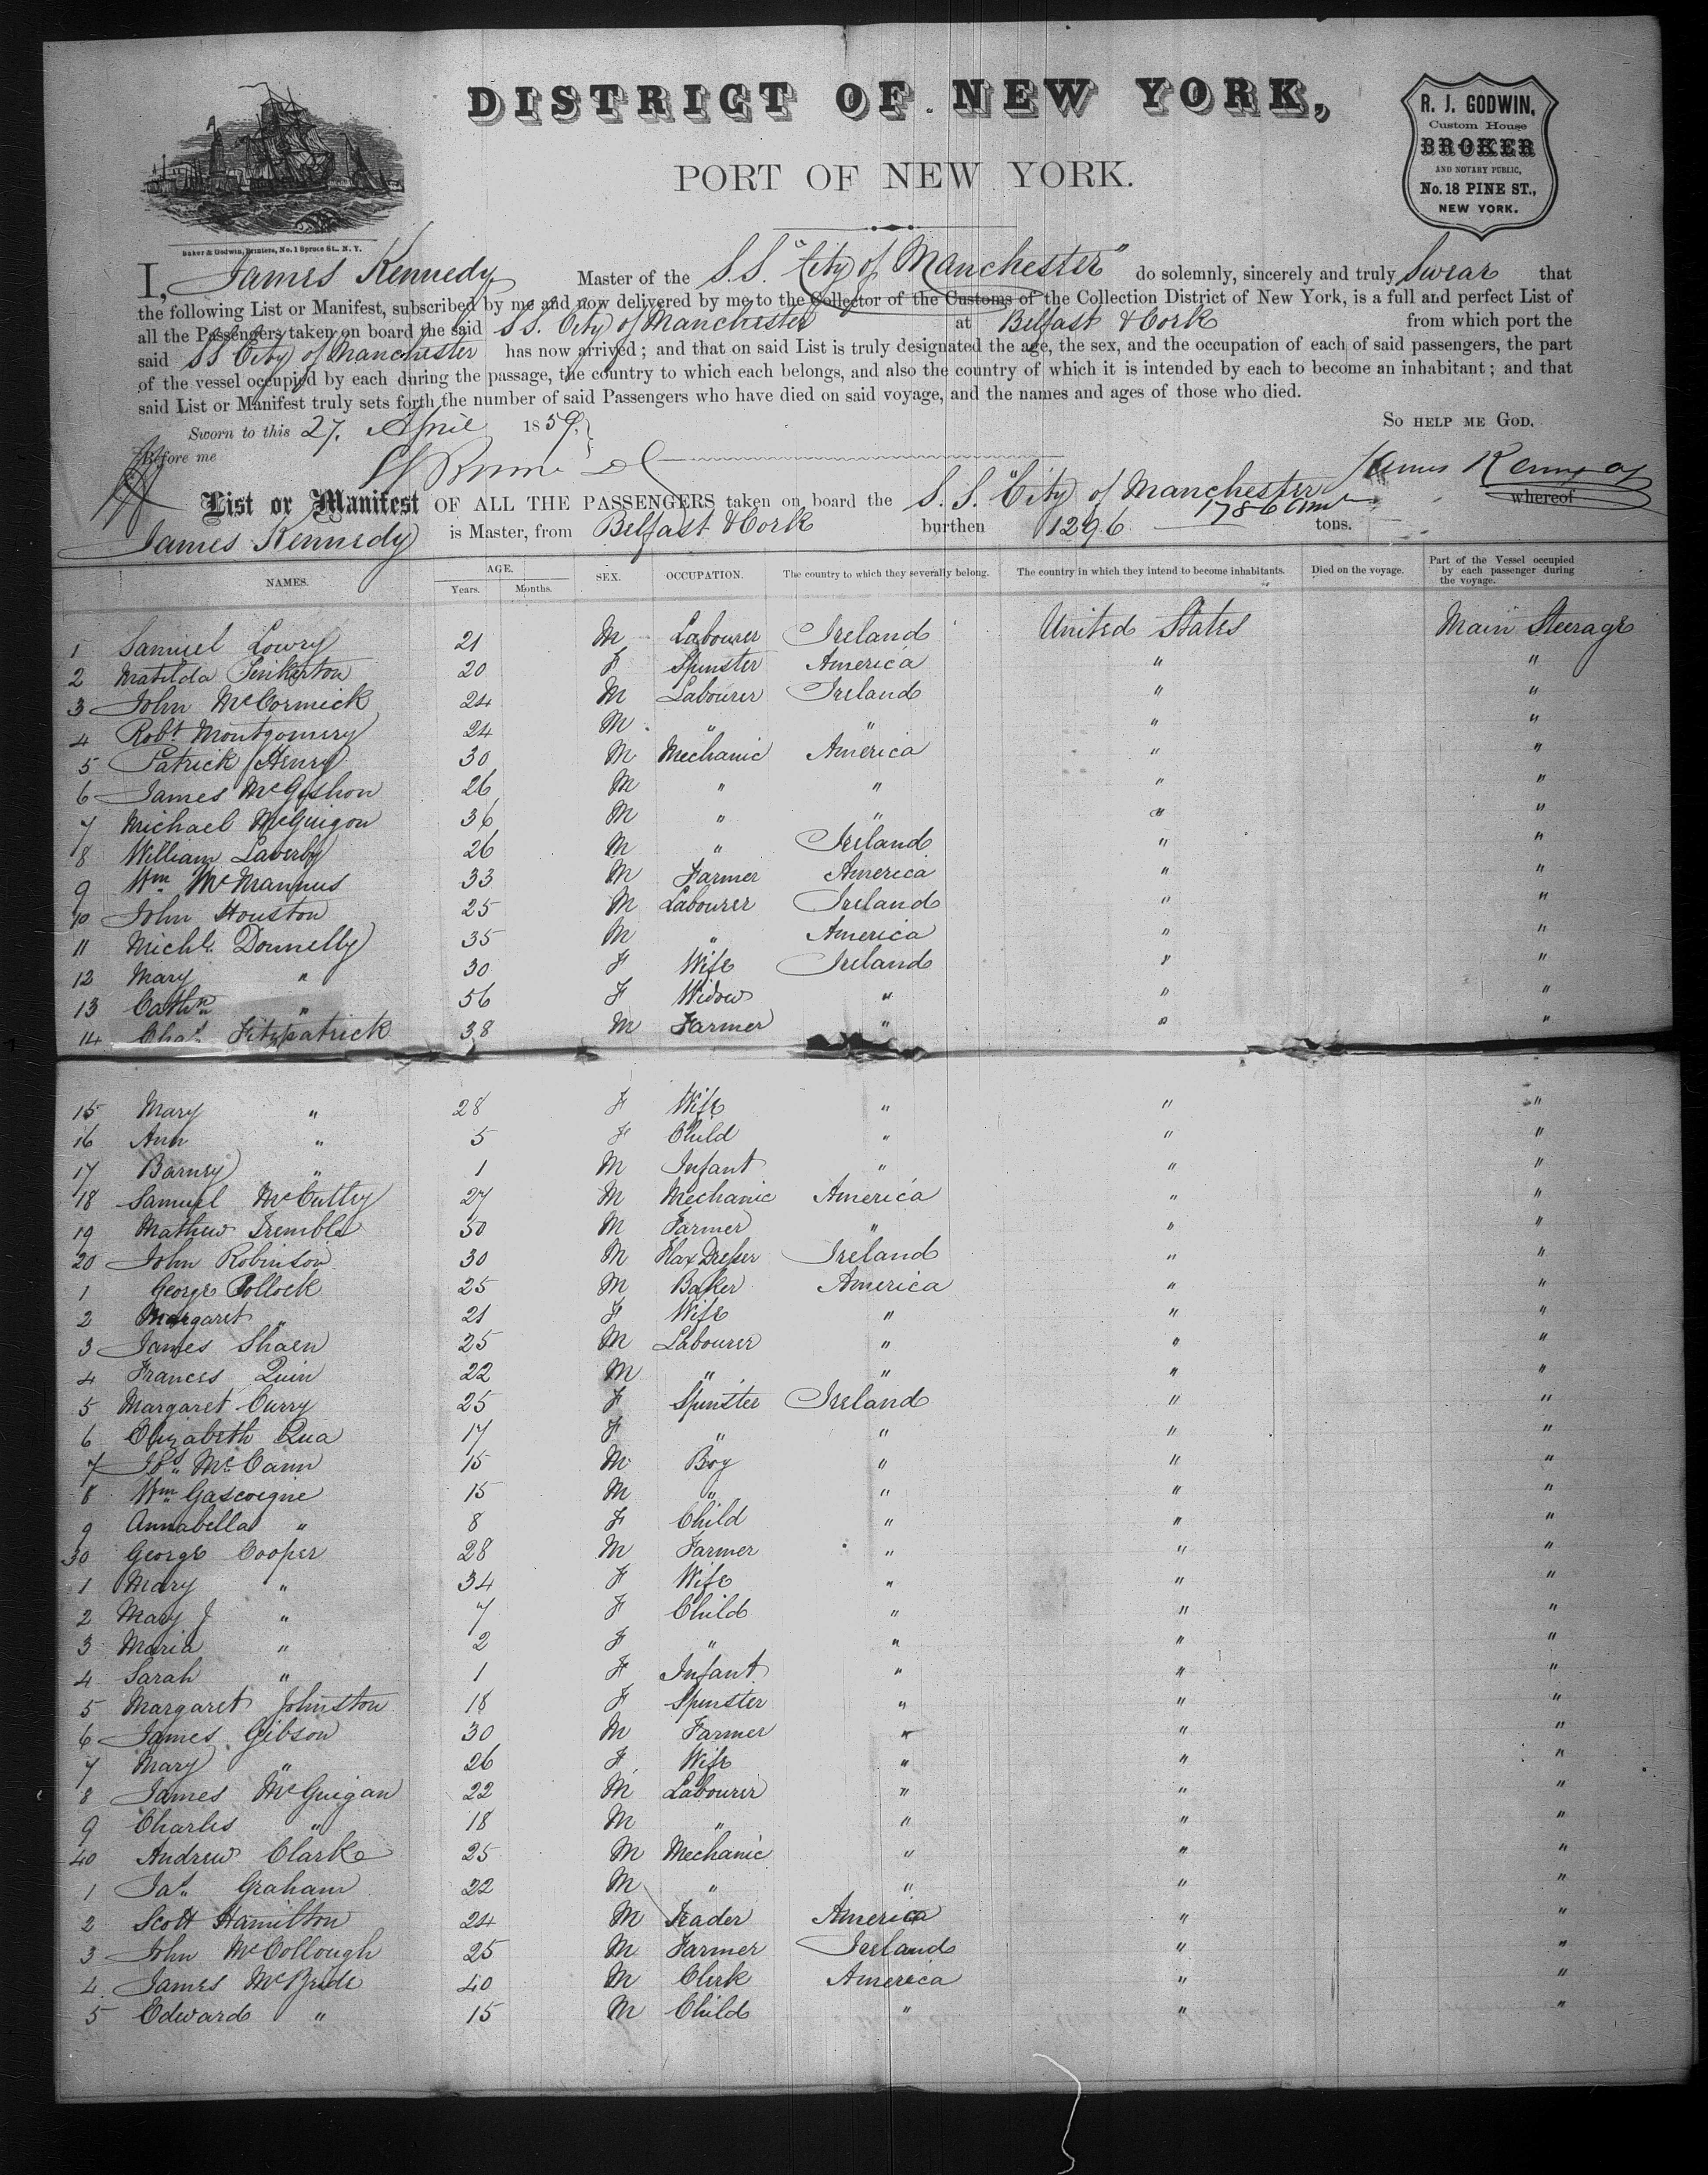 DISTRICT OF NEW YORK,
PORT OF NEW YORK.
R. J. GODWIN,
Custom House
BROKER
AND NOTARY PUBLIC,
No. 18 PINE ST.,
NEW YORK.
Baker & Godwin, Printers, No. 1 Spruce St., N. Y.
I, James Kennedy Master of the S.S. "City of Manchester" do solemnly, sincerely and truly Swear that
the following List or Manifest, subscribed by me and now delivered by me to the Collector of the Customs of the Collection District of New York, is a full and perfect List of
all the Passengers taken on board the said S S. City of Manchester at Belfast & Cork from which port the
said SS City of Manchester has now arrived; and that on said List is truly designated the age, the sex, and the occupation of each of said passengers, the part
of the vessel occupied by each during the passage, the country to which each belongs, and also the country of which it is intended by each to become an inhabitant; and that
said List or Manifest truly sets forth the number of said Passengers who have died on said voyage, and the names and ages of those who died.
Sworn to this 27. April 1859. So help me God.
Before me
James Kennedy
List or Manifest OF ALL THE PASSENGERS taken on board the S. S. "City of Manchester whereof
James Kennedy is Master, from Belfast & Cork burthen 1296 1786 tons.
NAMES. AGE. SEX. OCCUPATION. The country to which they severally belong. The country in which they intend to become inhabitants. Died on the voyage. Part of the Vessel occupied by each passenger during the voyage.
Years. Months.
1 Samuel Lowry 21 M Labourer Ireland United States Main Steerage
2 Matilda Pinkerton 20 F Spinster America " "
3 John McCormick 24 M Labourer Ireland " "
4 Robt. Montgomery 24 M " " " "
5 Patrick Henry 30 M Mechanic America " "
6 James 26 M " " " "
7 Michael McGuigon 36 M " " " "
8 William Laverby 26 M " Ireland " "
9 Wm McMannus 33 M Farmer America " "
10 John Houston 25 M Labourer Ireland " "
11 Michl. Donnelly 35 M " America " "
12 Mary " 30 F Wife Ireland " "
13 Cathn " 56 F Widow " " "
14 Chas. Fitzpatrick 38 M Farmer " " "
15 Mary " 28 F Wife " " "
16 Ann " 5 F Child " " "
17 Barney " 1 M Infant " " "
18 Samuel McCutley 27 M Mechanic America " "
19 Mathew Tremble 50 M Farmer " " "
20 John Robinson 30 M Flax Dresser Ireland " "
1 George Pollock 25 M Baker America " "
2 Margaret " 21 F Wife " " "
3 James Shaen 25 M Labourer " " "
4 Frances Quin 22 M " " " "
5 Margaret Curry 25 F Spinster Ireland " "
6 Elizabeth Qua 17 F " " " "
7 Jos. McCann 15 M Boy " " "
8 Wm Gascoigne 15 M " " " "
9 Annabella " 8 F Child " " "
30 George Cooper 28 M Farmer " " "
1 Mary " 34 F Wife " " "
2 Mary J " 7 F Child " " "
3 Maria " 2 F " " " "
4 Sarah " 1 F Infant " " "
5 Margaret Johnston 18 F Spinster " " "
6 James Gibson 30 M Farmer " " "
7 Mary " 26 F Wife " " "
8 James McGuigan 22 M Labourer " " "
9 Charles " 18 M " " " "
40 Andrew Clarke 25 M Mechanic " " "
1 Jas. Graham 22 M " " " "
2 Scott Hamilton 24 M Trader America " "
3 John McCollough 25 M Farmer Ireland " "
4 James McBride 40 M Clerk America " "
5 Edward " 15 M Child " " "